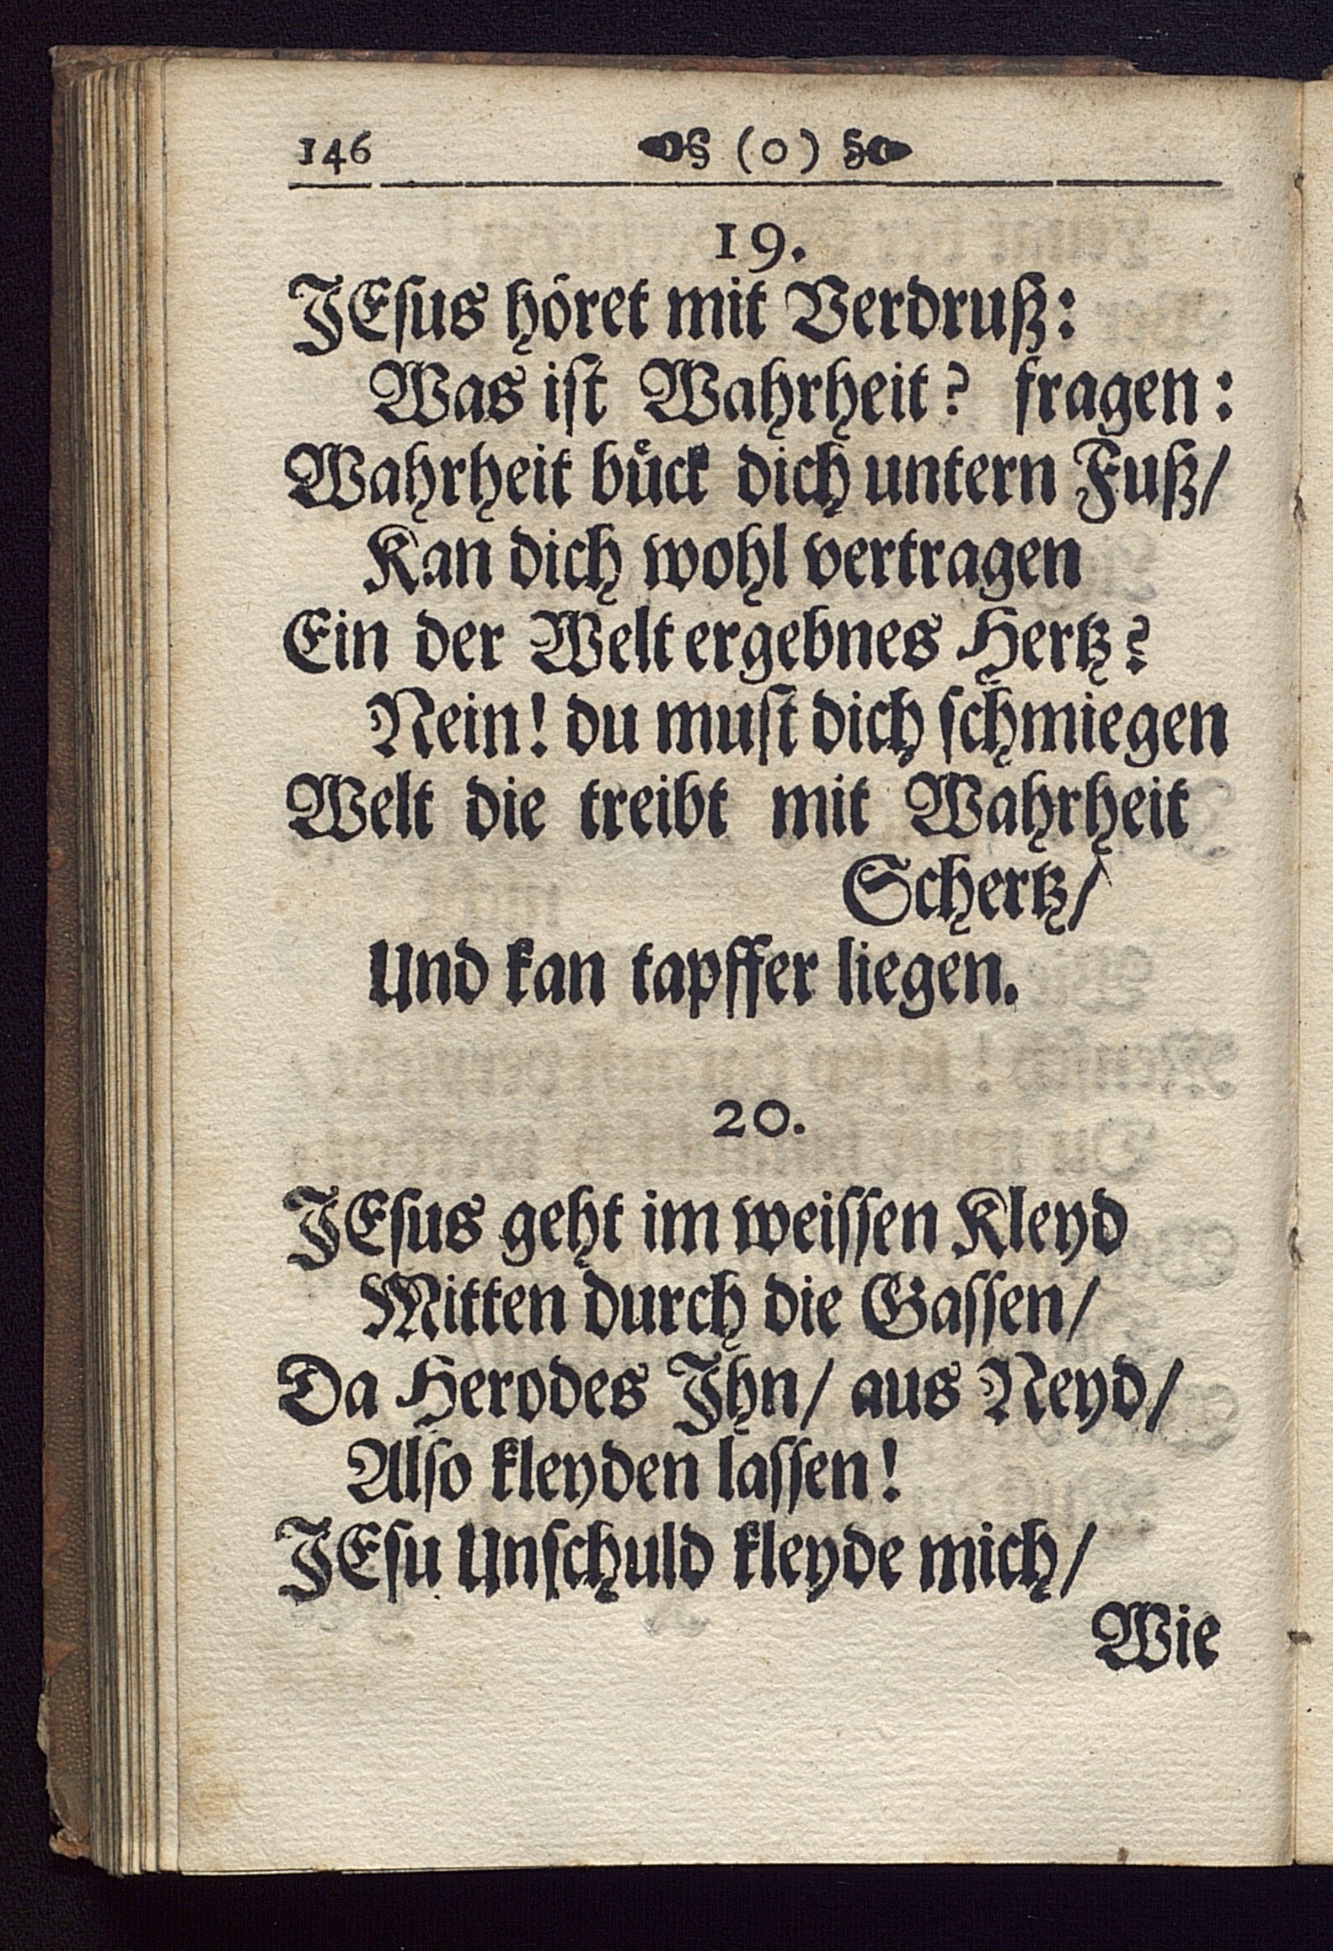 146 §(0)§
19.
JEsus höret mit Verdruß:
Was ist Wahrheit? fragen:
Wahrheit bück dich untern Fuß/
Kan dich wohl vertragen
Ein der Welt ergebnes Hertz?
Nein! du must dich schmiegen
Welt die treibt mit Wahrheit
Schertz/
Und kan tapffer liegen.
20.
JEsus geht im weissen Kleyd
Mitten durch die Gassen/
Da Herodes Jhn/ aus Neyd/
Also kleyden lassen!
JEsu Unschuld kleyde mich/
Wie